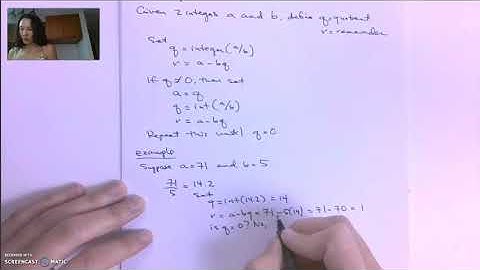 Given 2 integers a and b, define q=quotient
r=remainder
Set
q = integer(a/b)
r = a-bq
If q≠0, then set
a=q
q = int(a/b)
r = a-bq
Repeat this until q=0
Example
Suppose a=71 and b=5
71/5 = 14.2 Set
q=int(14.2) = 14
r = a-bq = 71-5(14) = 71-70 = 1
is q=0? No,
RECORDED WITH
SCREENCAST-O-MATIC